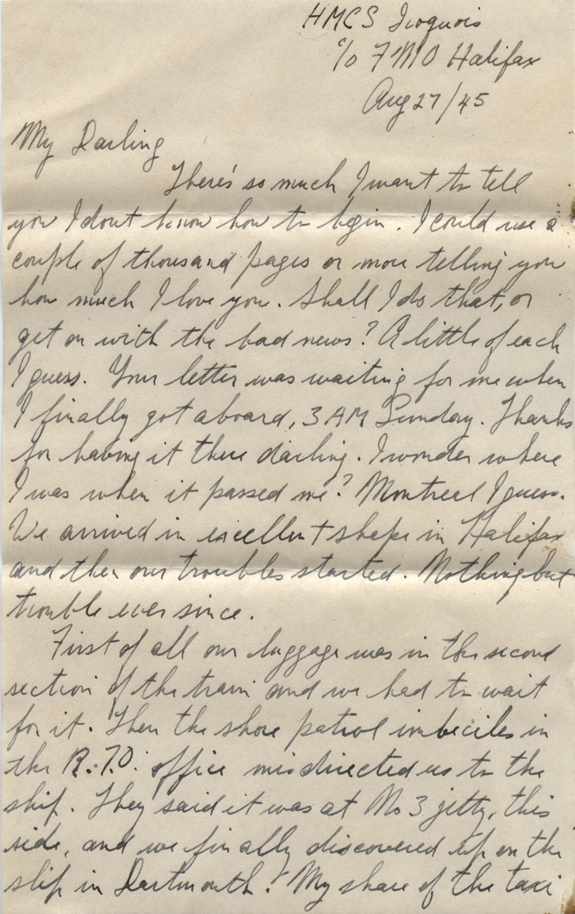 HMCS Iroquois
c/o FMO Halifax
Aug 27/45
My Darling
There's so much I want to tell
you I dont know how to begin. I could use a
couple of thousand pages or more telling you
how much I love you. Shall I do that, or
get on with the bad news? A little of each
I guess. Your letter was waiting for me when
I finally got aboard, 3 AM Sunday. Thanks
for having it there darling. I wonder where
I was when it passed me? Montreal I guess.
We arrived in excellent shape in Halifax
and then our troubles started. Nothing but
trouble ever since.
First of all our luggage was in the second
section of the train and we had to wait
for it. Then the shore patrol imbeciles in
the R.T.O. office misdirected us to the
ship. They said it was at No 3 jetty, this
side, and we finally discovered it up on the
slip in Dartmouth! My share of the taxi